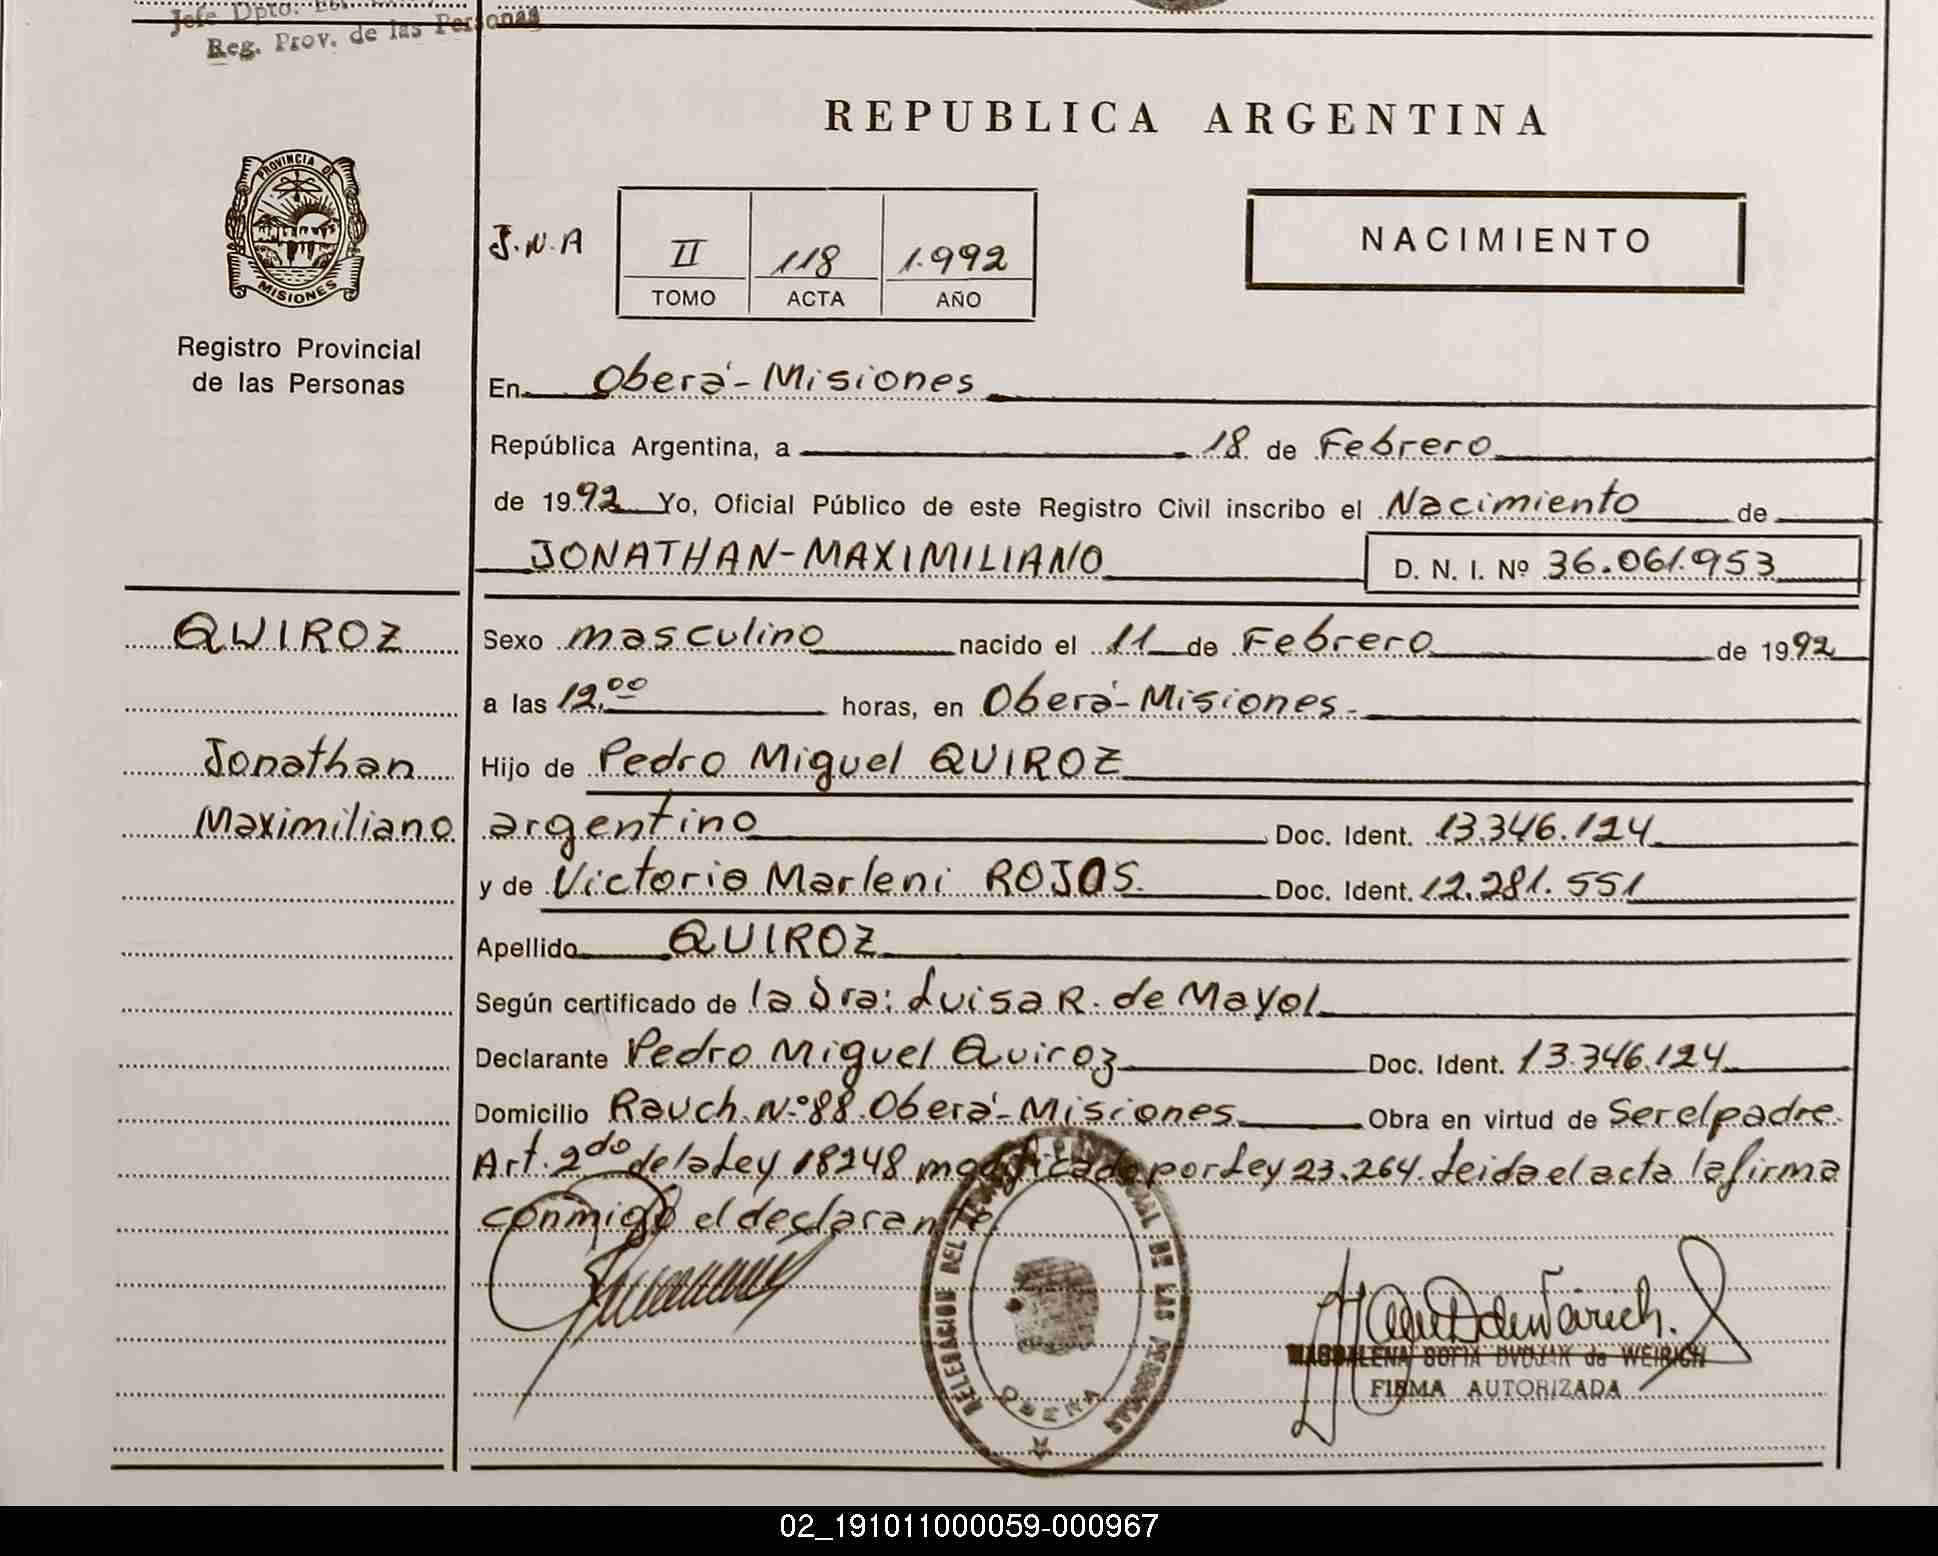 Jefe Dpto.
Reg. Prov. de las Personas
REPUBLICA ARGENTINA
PROVINCIA DE
MISIONES
Registro Provincial
de las Personas
J.N.A
II
118
1.992
TOMO
ACTA
AÑO
NACIMIENTO
En Oberá-Misiones
República Argentina, a 18 de Febrero
de 1992 Yo, Oficial Público de este Registro Civil inscribo el Nacimiento de
JONATHAN-MAXIMILIANO D. N. I. Nº 36.061.953
QUIROZ
Jonathan
Maximiliano
Sexo masculino nacido el 11 de Febrero de 1992
a las 12,00 horas, en Oberá-Misiones.
Hijo de Pedro Miguel QUIROZ
argentino Doc. Ident. 13.346.124
y de Victoria Marleni ROJAS. Doc. Ident. 12.281.551
Apellido QUIROZ
Según certificado de la Dra: Luisa R. de Mayol
Declarante Pedro Miguel Quiroz Doc. Ident. 13.346.124
Domicilio Rauch N.º88 Oberá-Misiones Obra en virtud de Ser el padre.
Art. 2do de la Ley 18248 modificado por Ley 23.264. Leida el acta la firma
conmigo el declarante.
DE LAS PERSONAS
OBERA
MAGDALENA SOFIA DVOJAK de WEIRICH
FIRMA AUTORIZADA
02_191011000059-000967